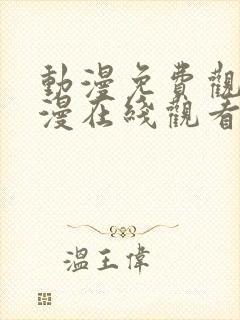 動漫免費觀
漫在綫觀看
溫王偉